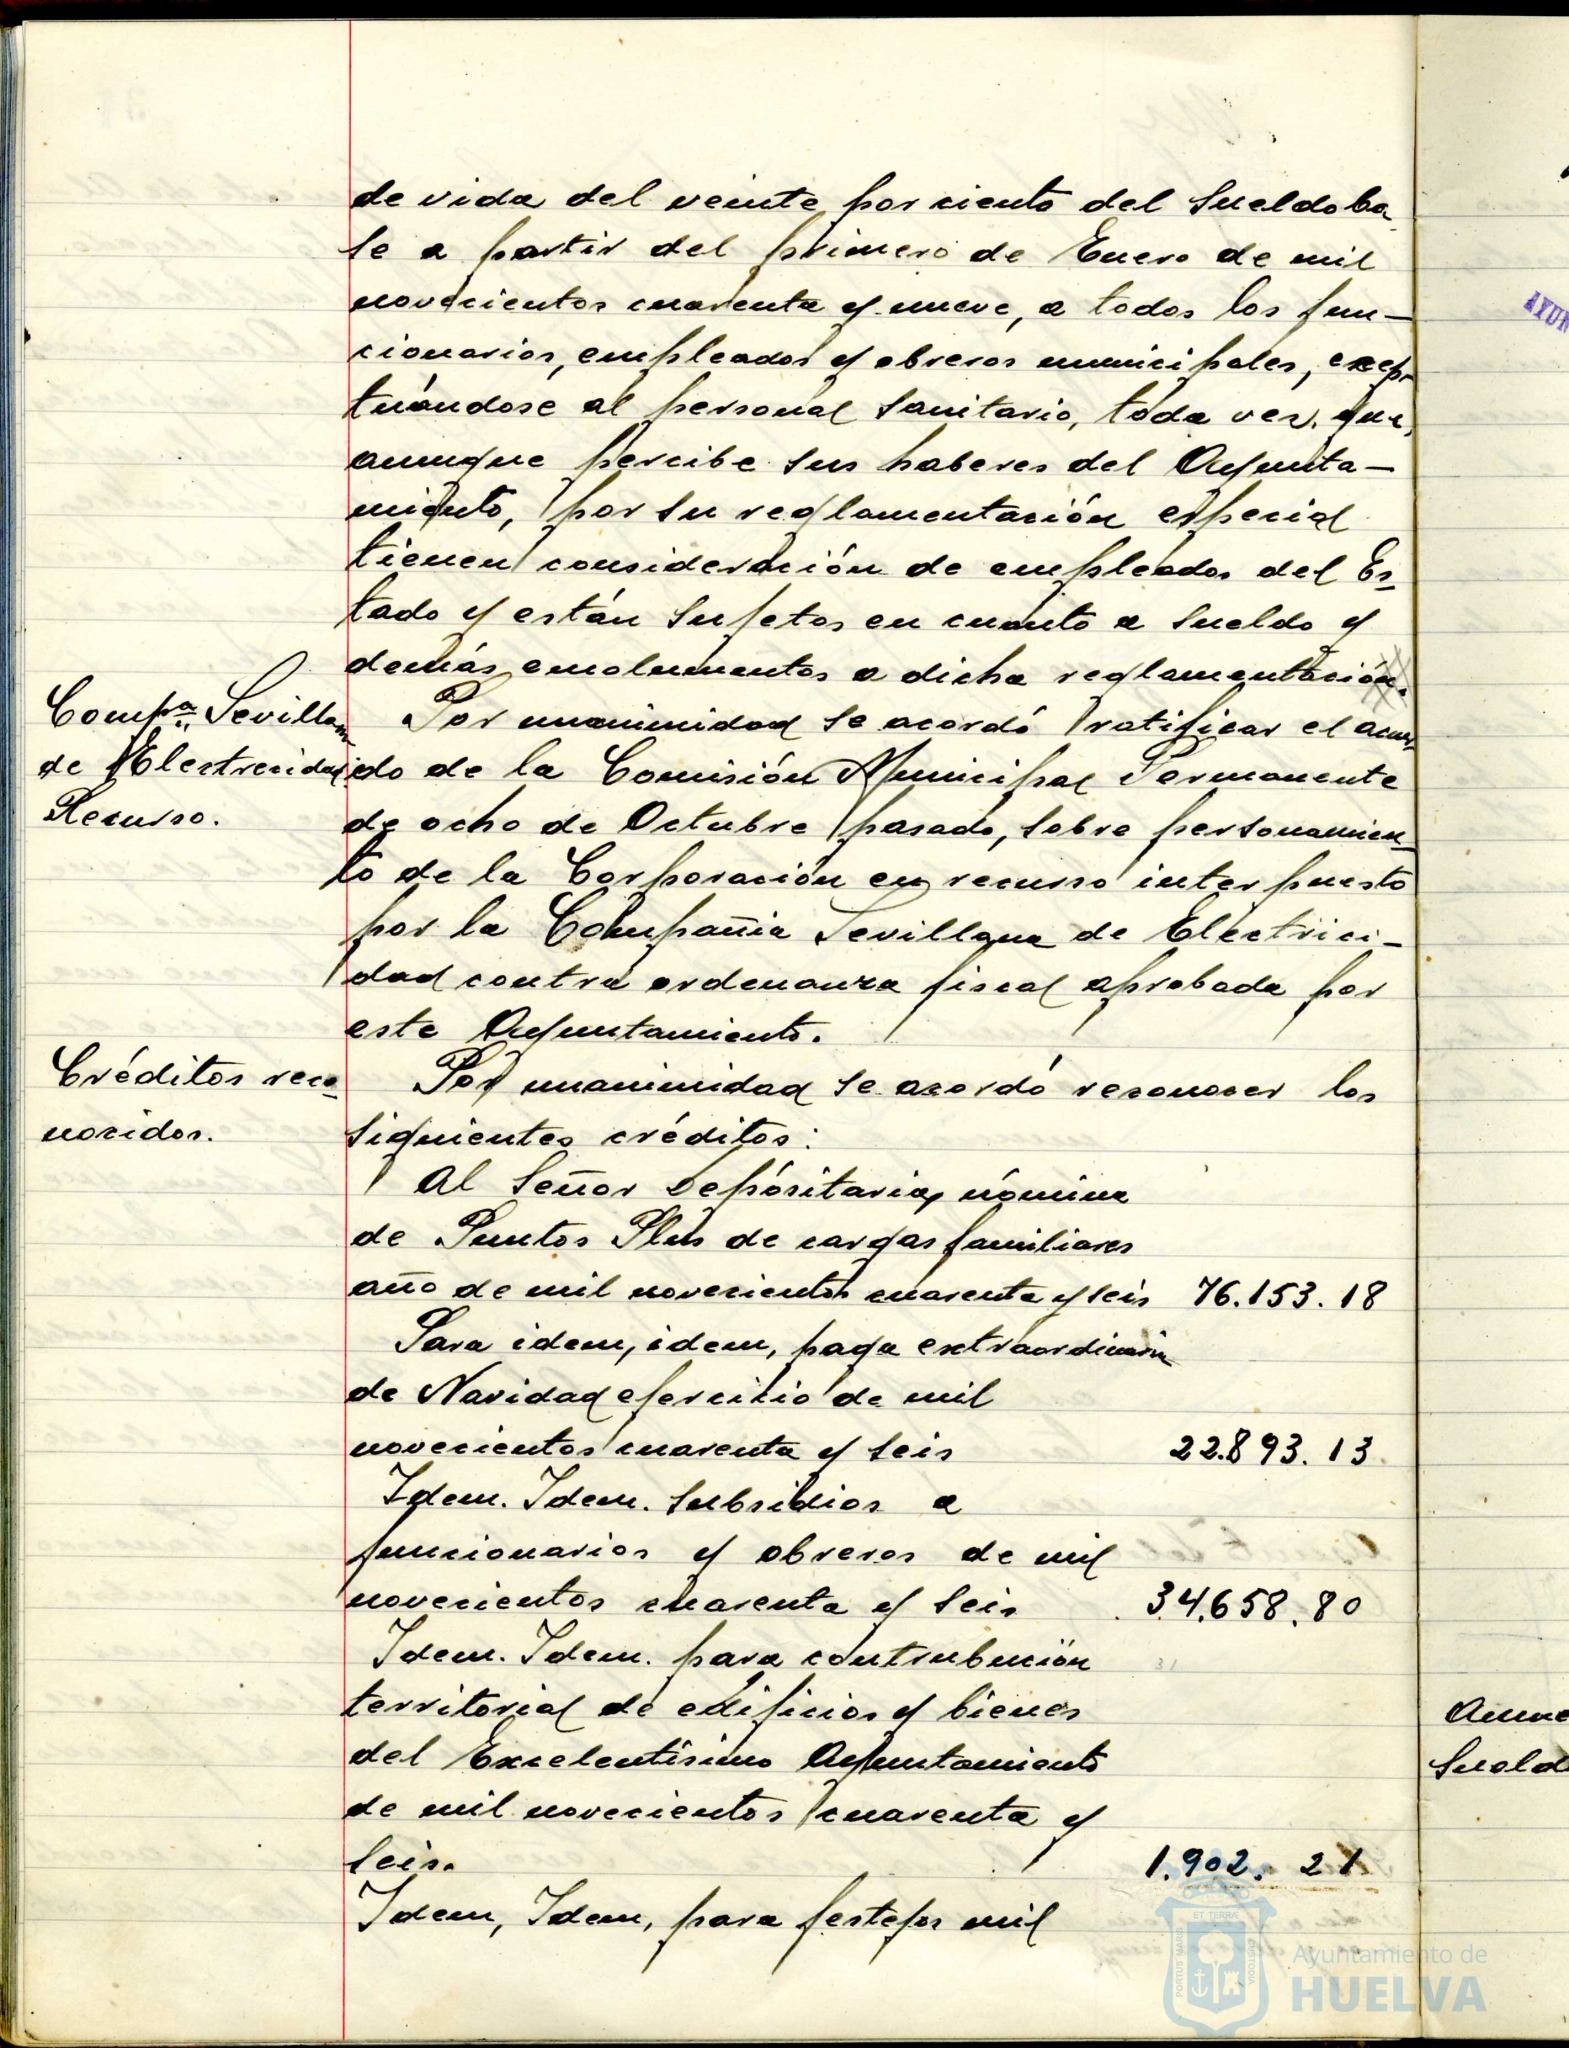 de vida del veinte por ciento del sueldo ba-
se a partir del primero de Enero de mil
novecientos cuarenta y nueve, a todos los fun-
cionarios, empleados y obreros municipales, excep-
tuándose al personal sanitario, toda vez que,
aunque percibe sus haberes del Ayunta-
miento, por su reglamentación especial
tienen consideración de empleados del Es-
tado y están sujetos en cuanto a sueldo y
demás emolumentos a dicha reglamentación.
Compª. Sevillana
de Electrecidad
Recurso.
Por unanimidad se acordó ratificar el acuer-
do de la Comisión Municipal Permanente
de ocho de Octubre pasado, sobre personamien-
to de la Corporación en recurso interpuesto
por la Compañia Sevillana de Electrici-
dad contra ordenanza fiscal aprobada por
este Ayuntamiento.
Créditos reco-
nocidos.
Por unanimidad se acordó reconocer los
siguientes créditos:
Al Señor Depósitario, nómina
de Puntos Plus de cargas familiares
año de mil novecientos cuarenta y seis 76.153.18
Para idem, idem, paga extraordinaria
de Navidad ejercicio de mil
novecientos cuarenta y seis 22.893.13
Idem. Idem. subsidios a
funcionarios y obreros de mil
novecientos cuarenta y seis 34.658.80
Idem. Idem. para contrubución
territorial de edificios y bienes
del Excelentísimo Ayuntamiento
de mil novecientos cuarenta y
seis. 1.902.21
Idem, Idem, para festejos mil
AYUN
Aume
Sueld
ET TERRÆ
PORTUS MARIS
CUSTODIA
Ayuntamiento de
HUELVA